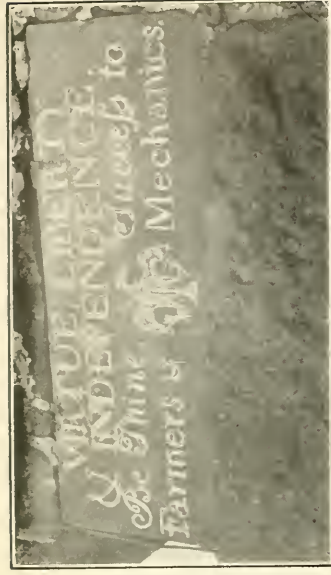 VIRTUE LIBERTY
& INDEPENDENCE
Be Thine Success to
Farmers & Mechanics.